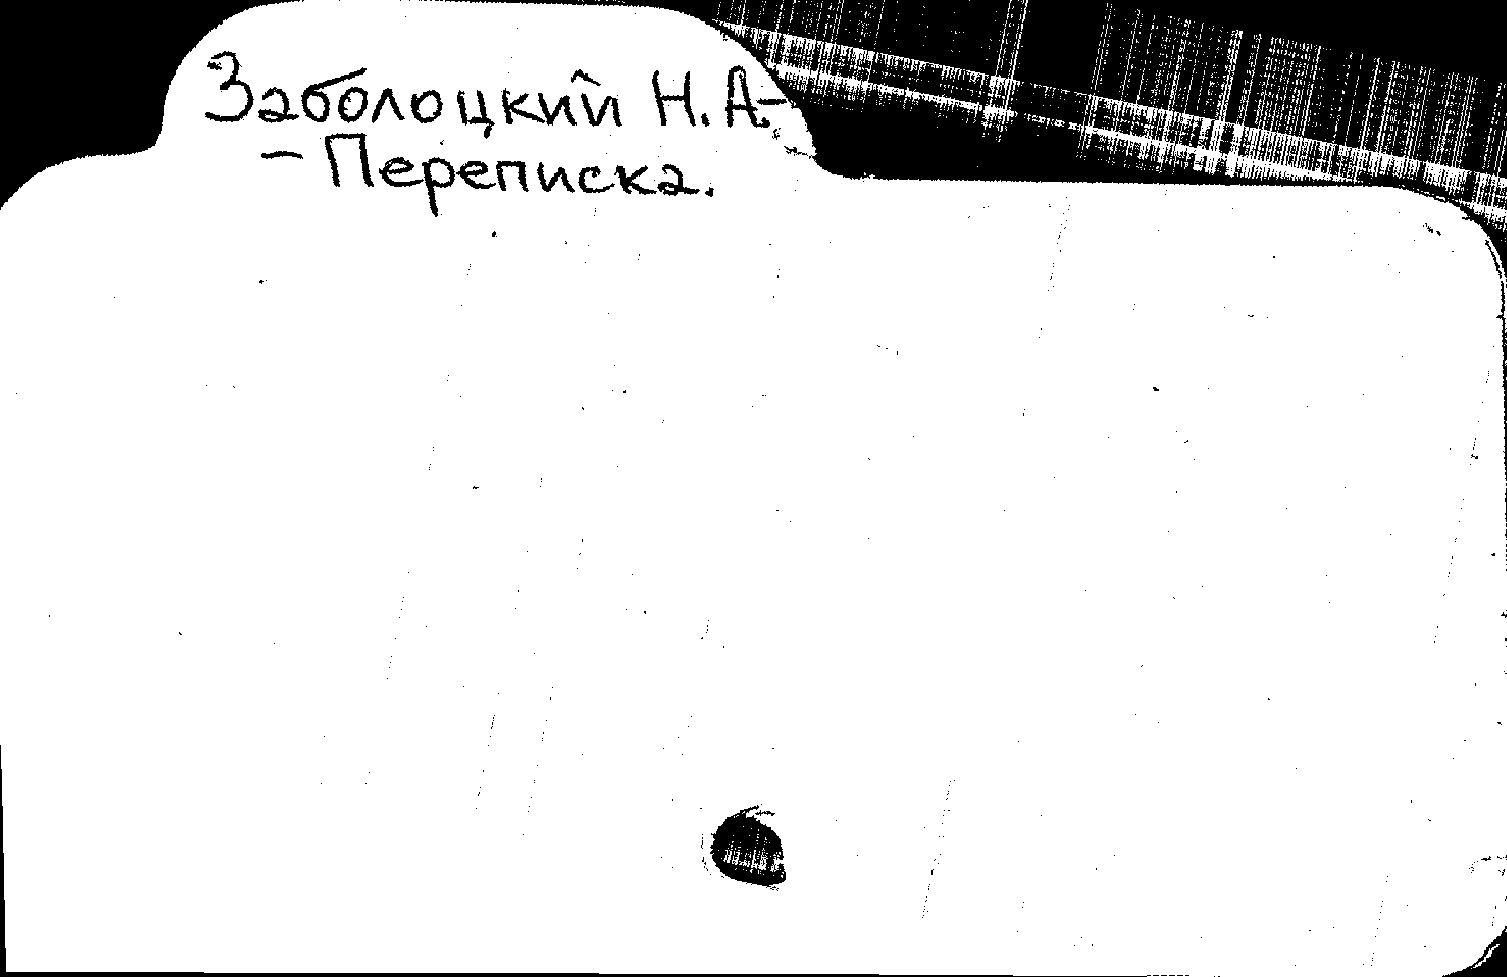 Заболоцкий Н. А.-
- Переписка.